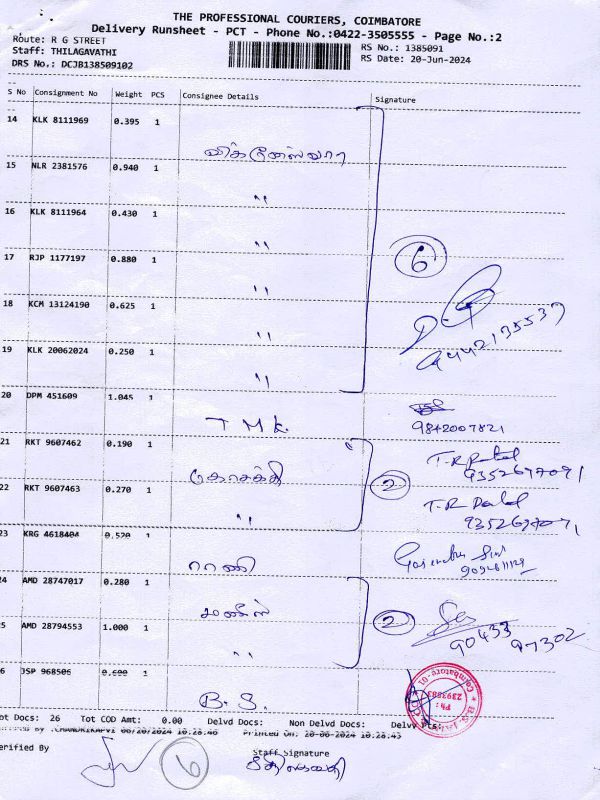 THE PROFESSIONAL COURIERS, COIMBATORE
Delivery Runsheet - PCT - Phone No.:0422-3505555 - Page No.:2
Route: R G STREET
RS No.: 1385091
Staff: THILAGAVATHI
RS Date: 20-Jun-2024
DRS No.: DCJB138509102
S No Consignment No Weight PCS Consignee Details Signature
14 KLK 8111969 0.395 1
விக்னேஸ்வரா
15 NLR 2381576 0.940 1
"
16 KLK 8111964 0.430 1
"
6
17 RJP 1177197 0.880 1
"
18 KCM 13124190 0.625 1
"
9442135537
19 KLK 20062024 0.250 1
"
20 DPM 451609 1.045 1
T M K.
9842007821
21 RKT 9607462 0.190 1
T.R Patel
9352677071
2
22 RKT 9607463 0.270 1
"
T.R Patel
9352677071
23 KRG 4618404 0.520 1
ராணி
24 AMD 28747017 0.280 1
2
25 AMD 28794553 1.000 1
"
90433 97302
26 JSP 968506 0.600 1
B.S.
Coimbatore-01
Ph: 2393883
Tot Docs: 26 Tot COD Amt: 0.00 Delvd Docs: Non Delvd Docs: Delvy Pts:
Printed On: 20-06-2024 10:28:43
Verified By
6
Staff Signature